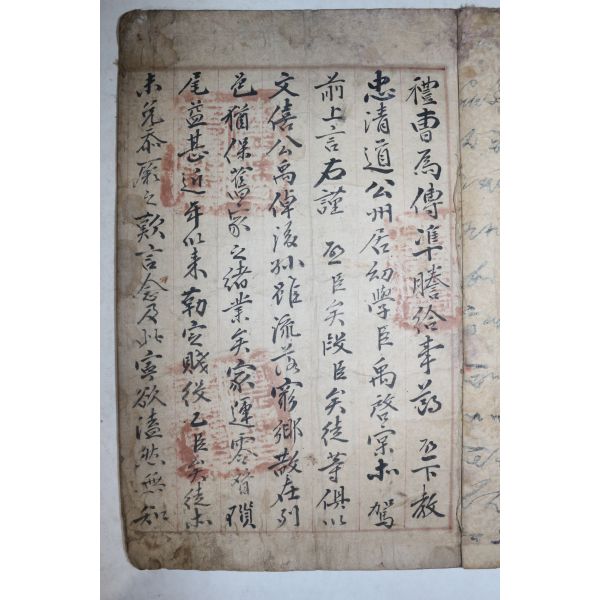 禮曹爲傳準謄給事節 啓下教
忠清道公州居幼學臣禹啓宗亦 駕
前上言右謹 啓臣矣段臣矣徒等俱以
文僖公禹倬後孫雖流落窮鄉散在列
邑猶保舊家之緒業矣家運零替瑣
尾益甚近年以來勒定賤役乙臣矣徒亦
未免忝厥之歎言念及此寧欲溘然無知